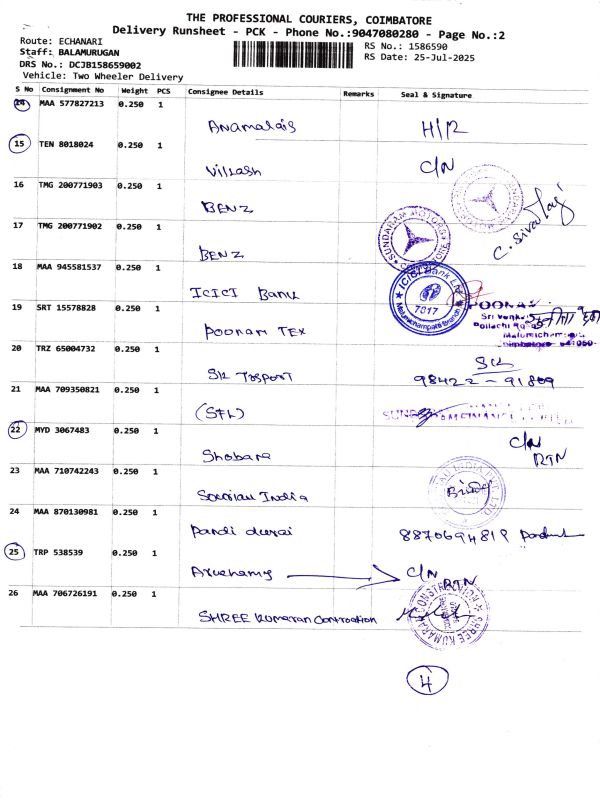 THE PROFESSIONAL COURIERS, COIMBATORE
Delivery Runsheet - PCK - Phone No.:9047080280 - Page No.:2
Route: ECHANARI
RS No.: 1586590
Staff: BALAMURUGAN
RS Date: 25-Jul-2025
DRS No.: DCJB158659002
Vehicle: Two Wheeler Delivery
S No Consignment No Weight PCS Consignee Details Remarks Seal & Signature
14 MAA 577827213 0.250 1
Anamalais H/R
15 TEN 8018024 0.250 1
C/N
16 TMG 200771903 0.250 1
BENZ
17 TMG 200771902 0.250 1
SUNDARAM MOTORS
C. Siva
BENZ
18 MAA 945581537 0.250 1
ICICI Bank
ICICI Bank
7017
19 SRT 15578828 0.250 1
POONAM
Sri
Pollachi
Poonam TEX
20 TRZ 65004732 0.250 1
SK
SK Tosport 98422 - 91809
21 MAA 709350821 0.250 1
(SFL)
22 MYD 3067483 0.250 1
C/N
RTN
Shobara
23 MAA 710742243 0.250 1
Souriau India
24 MAA 870130981 0.250 1
Pandi durai 8870694819
25 TRP 538539 0.250 1
C/N
RTN
26 MAA 706726191 0.250 1
SHREE Kumaran Controction
SHREE KUMARAN CONSTRUCTION
4